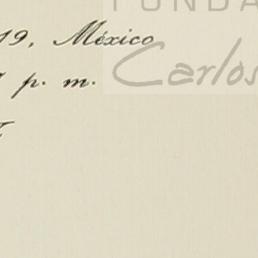 FUNDA
19, México
Carlos
p. m.